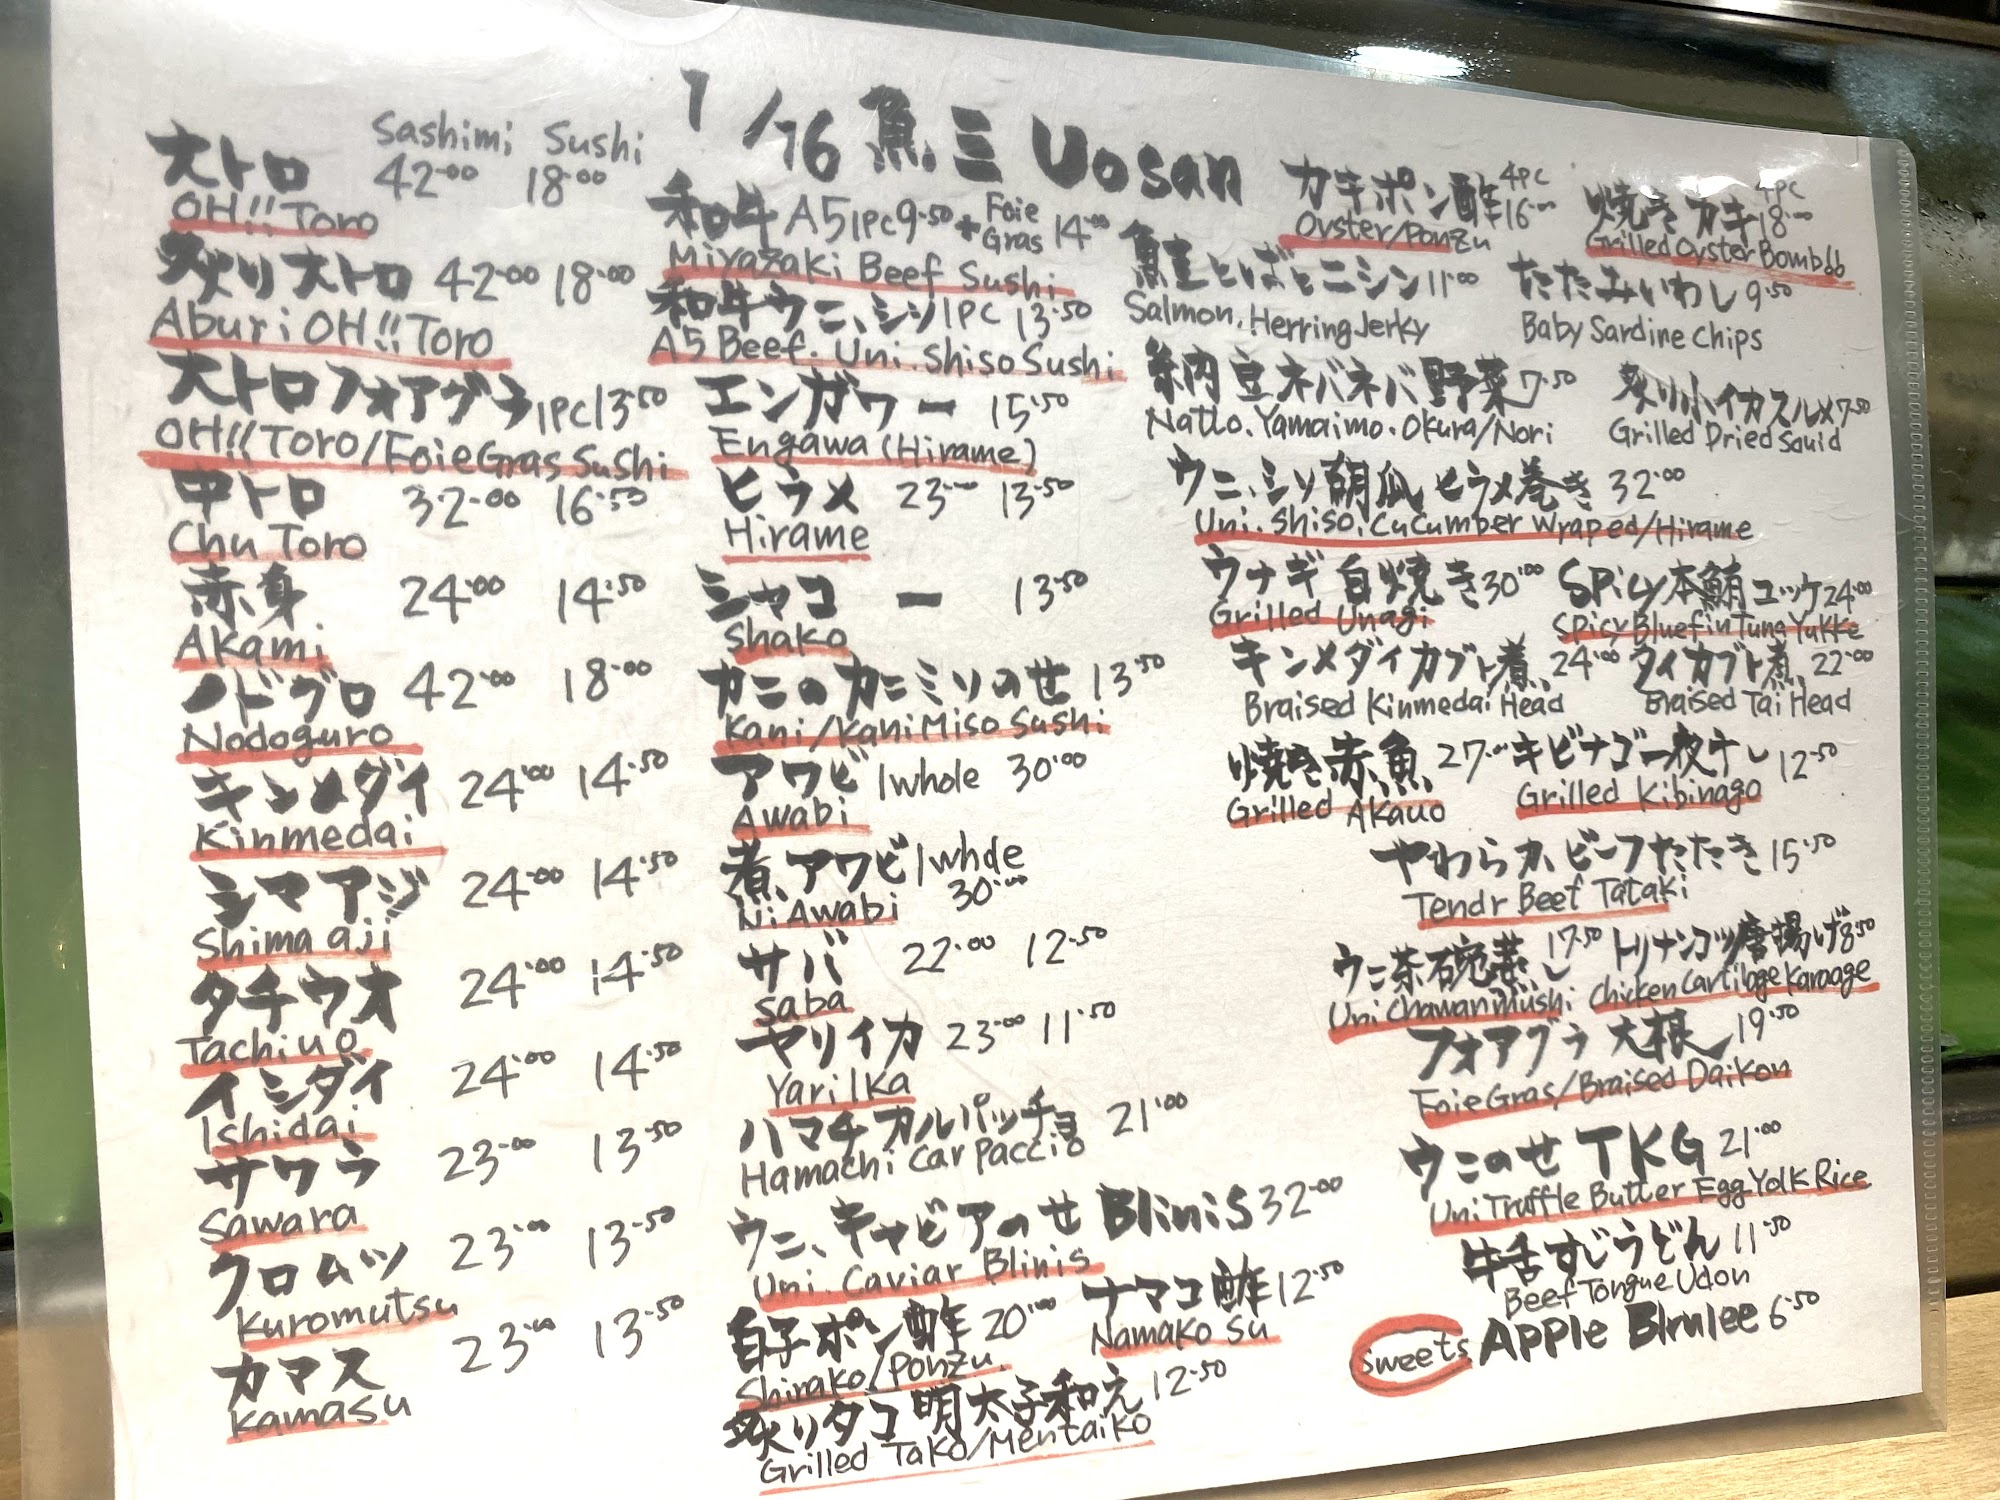 1/16 魚三 Uosan
Sashimi Sushi
大トロ 42.00 18.00
OH!! Toro
炙り大トロ 42.00 18.00
Aburi OH!! Toro
大トロフォアグラ 1PC 13.50
OH!! Toro/Foie Gras Sushi
中トロ 32.00 16.50
Chu Toro
赤身 24.00 14.50
Akami
ノドグロ 42.00 18.00
Nodoguro
キンメダイ 24.00 14.50
Kinmedai
シマアジ 24.00 14.50
Shima aji
タチウオ 24.00 14.50
Tachiuo
イシダイ 24.00 14.50
Ishidai
サワラ 23.00 13.50
Sawara
クロムツ 23.00 13.50
Kuromutsu
カマス 23.00 13.50
Kamasu
和牛 A5 1PC 9.50 + Foie Gras 14.00
Miyazaki Beef Sushi
和牛ウニ、シソ 1PC 13.50
A5 Beef. Uni. Shiso Sushi
エンガワ ー 15.50
Engawa (Hirame)
ヒラメ 23.00 13.50
Hirame
シャコ ー 13.50
Shako
カニのカニミソのせ 13.50
Kani/Kani Miso Sushi
アワビ 1whole 30.00
Awabi
煮アワビ 1whole
30.00
Ni Awabi
サバ 22.00 12.50
Saba
ヤリイカ 23.00 11.50
Yari Ika
ハマチカルパッチョ 21.00
Hamachi Carpaccio
ウニ、キャビアのせ Blinis 32.00
Uni. Caviar Blinis
白子ポン酢 20.00
Shirako/Ponzu
ナマコ酢 12.50
Namako Su
炙りタコ明太子和え 12.50
Grilled Tako/Mentaiko
カキポン酢 4PC 16.00
Oyster/Ponzu
焼きカキ 4PC 18.00
Grilled Oyster Bomb66
鮭とばとニシン 11.00
Salmon, Herring Jerky
たたみいわし 9.50
Baby Sardine Chips
納豆ネバネバ野菜 7.50
Natto. Yamaimo. Okura/Nori
炙り小イカスルメ 7.50
Grilled Dried Squid
ウニ、シソ胡瓜ヒラメ巻き 32.00
Uni. Shiso. Cucumber Wraped/Hirame
ウナギ白焼き 30.00
Grilled Unagi
SPicy本鮪ユッケ 24.00
Spicy Bluefin Tuna Yukke
キンメダイカブト煮 24.00
Braised Kinmedai Head
タイカブト煮 22.00
Braised Tai Head
焼き赤魚 27.00
Grilled Akauo
キビナゴ一夜干し 12.50
Grilled Kibinago
やわらか、ビーフたたき 15.50
Tendr Beef Tataki
ウニ茶碗蒸し 17.50
Uni Chawanmushi
トリナンコツ唐揚げ 8.50
Chicken Cartilage Karaage
フォアグラ大根 19.50
Foie Gras/Braised Daikon
ウニのせ TKG 21.00
Uni Truffle Butter Egg Yolk Rice
牛舌すじうどん 11.50
Beef Tongue Udon
Sweets Apple Blrulee 6.50